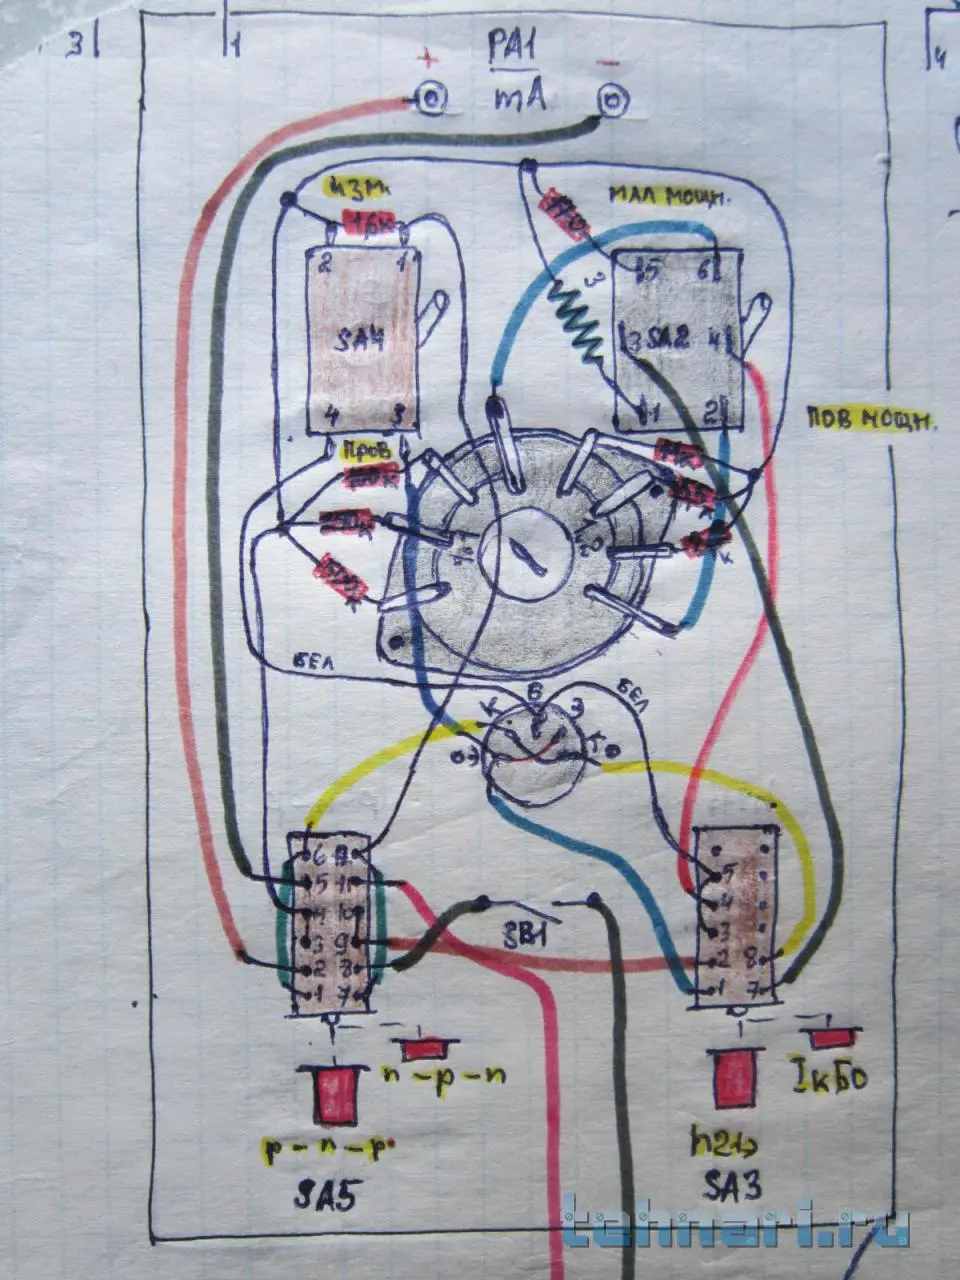 3
1
4
+
PA1
-
mA
ИЗМ.
1,6к
МАЛ МОЩН.
2
1
SA4
4
3
3
5
6
3
SA2
4
1
2
ПОВ МОЩН.
ПРОВ
БЕЛ
Б
БЕЛ
К
Э
Э
К
6
12
5
11
4
10
3
9
2
8
1
7
SB1
5
4
3
2
8
1
7
n-p-n
p-n-p
SA5
IкБО
h21э
SA3
tehnari.ru